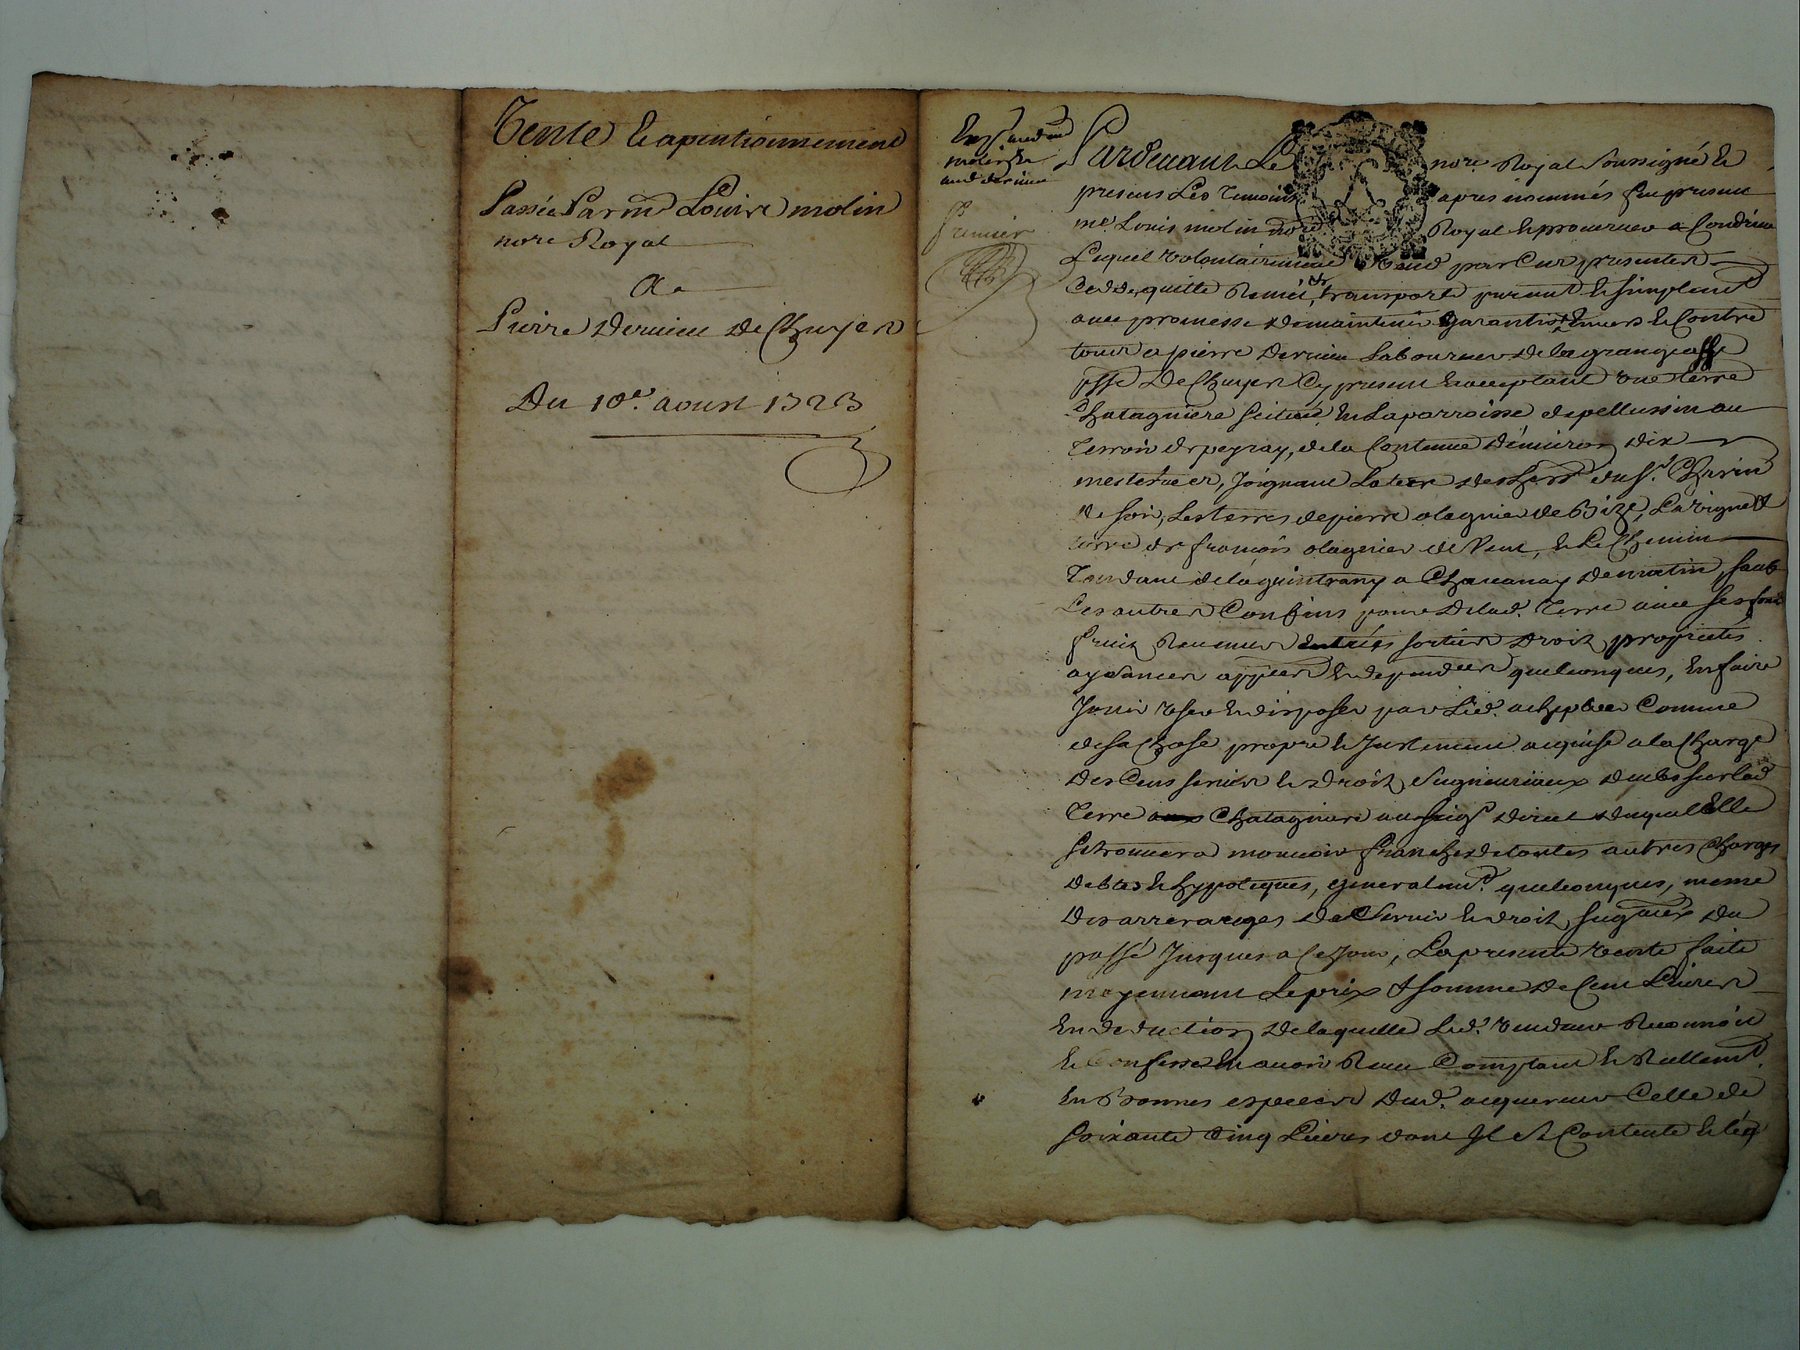 Vente et apentionnement
Passée Par me Louis molin
nore Royal
A
Pierre Dervieu De Chuyer
Du 10e. aoust 1723
premier
Pardevant Le nore. Royal soussigné et
presens Les Temoins apres nommés fut present
me. Louis molin nore Royal et procureur a Condrieu
Lequel volontairement vend par Ces presentes
Cedde, quitte Remet et transporte purement et simplement
avec promesse de maintenir garantir Envers et Contre
tous a pierre Dervieu Laboureur de la grange
psse De Chuyer Cy present et acceptant une terre
Chatagniere scituée En La parroisse de pellussin au
Terroir de peyray, de la Contenue D'environ dix
mesterées, Joignant La terre des hers du sr. Chirin
de soir, Les terres de pierre olagnier de Bize, La vigne et
terre de francois olagnier de Vent, et Le Chemin
Tendant de la guintrany a Chavanay De matin, sauf
Les autres Confins pour De lad. Terre avec ses fonds
fruits Revenus entrées sorties Droits proprietés
aysances appces et dependces quelconques, En faire
Jouir user et disposer par Led. achepteur Comme
de sa Chose propre et Justement acquise a la Charge
Des Cens servis et Droits seigneuriaux deubs sur lad
Terre Chatagniere au seigr Direct duquel Elle
se trouvera mouvoir franche de toutes autres Charges
Debtes et hypoteques, generalemt. quelconques, mesme
Des arrerages De servis et droits seigaux Du
passé Jusques a Ce Jour, La presente vente faite
moyennant Le prix et somme De Cent Livres
En deduction De laquelle Led. vendeur Reconnoit
et Confesse En avoir Reçeu Comptant et Reellemt
En Bonnes especes Dud. acquereur Celle de
soixante Cinq Livres dont Il se Contente et l'en